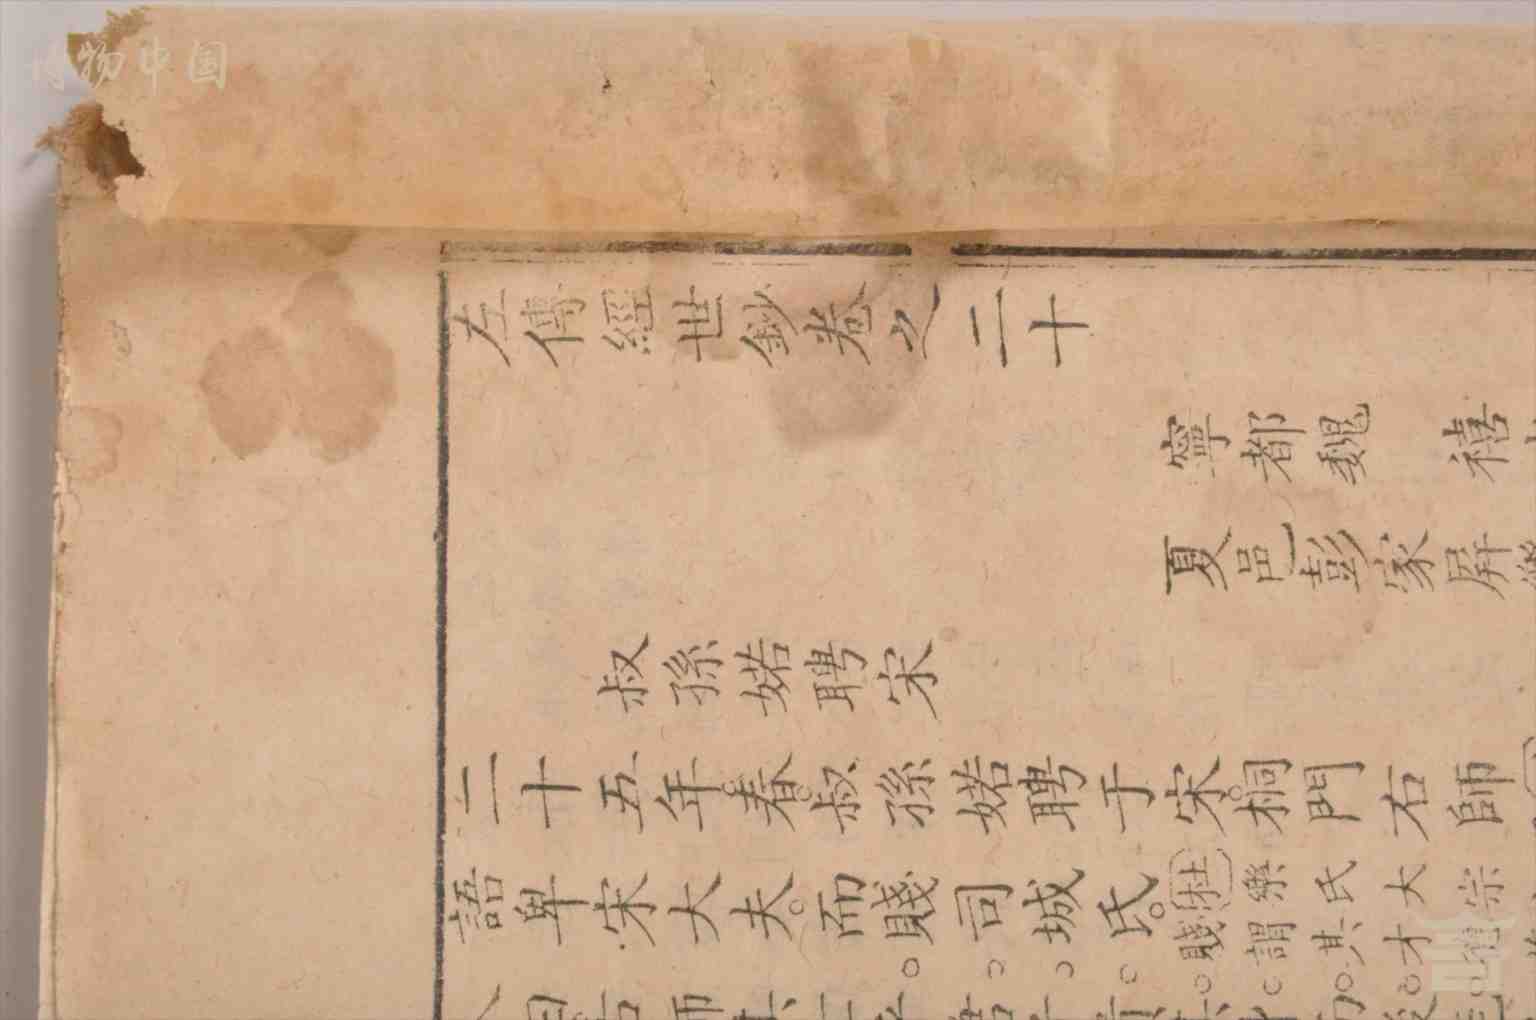 博物中国
左傳經世鈔卷之二十
寧都魏 禧
夏邑彭家屏
叔孫婼聘宋
二十五年春。叔孫婼聘于宋。桐門右師
語卑宋大夫。而賤司城氏。杜樂氏大宗
賤謂其才